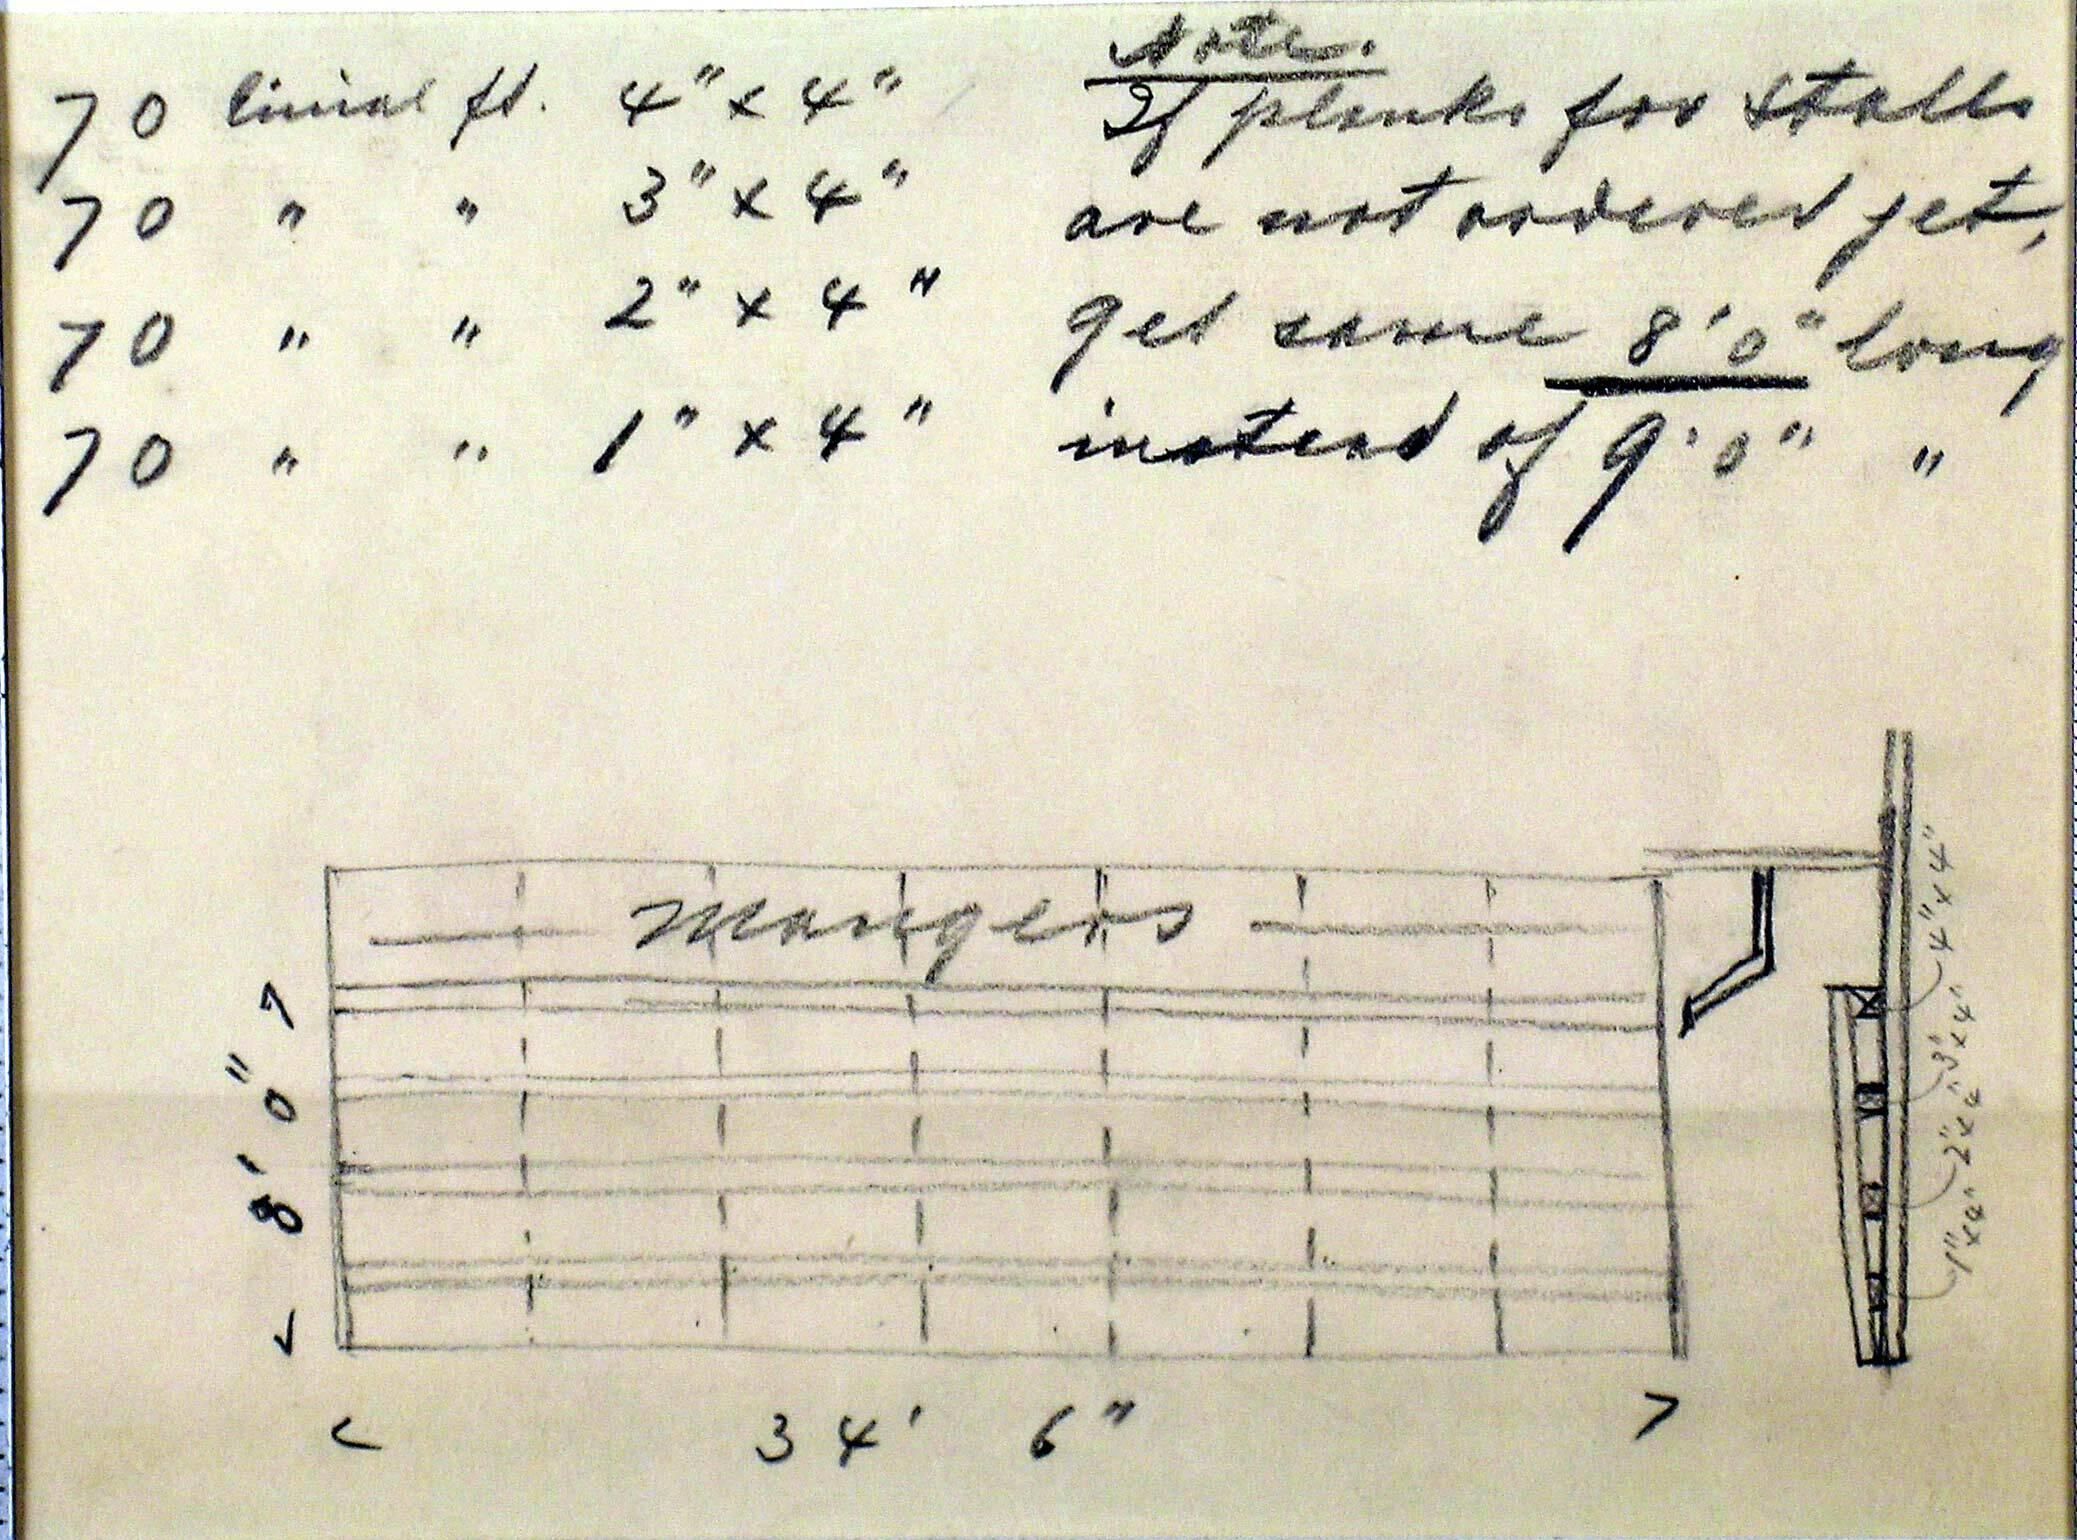 70 linial ft. 4" x 4"
70 " " 3" x 4"
70 " " 2" x 4"
70 " " 1" x 4"
Note.
If planks for stalls
are not ordered yet,
get same 8'0" long
instead of 9'0" "
Mangers
8' 0"
34' 6"
4" x 4"
3" x 4"
2" x 4"
1" x 4"